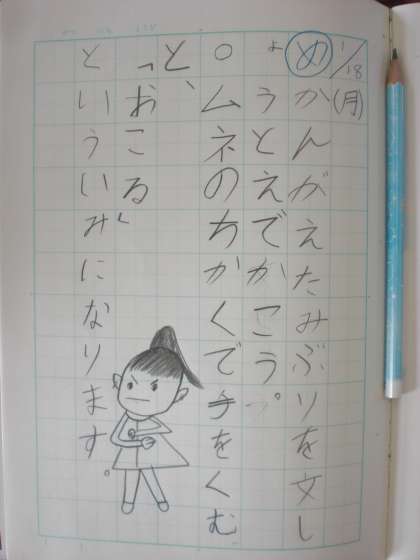 1/18(月)
めかんがえたみぶりを文し
ょうとえでかこう。
○ムネのちかくで手をくむ
と、
「おこる」
といういみになります。